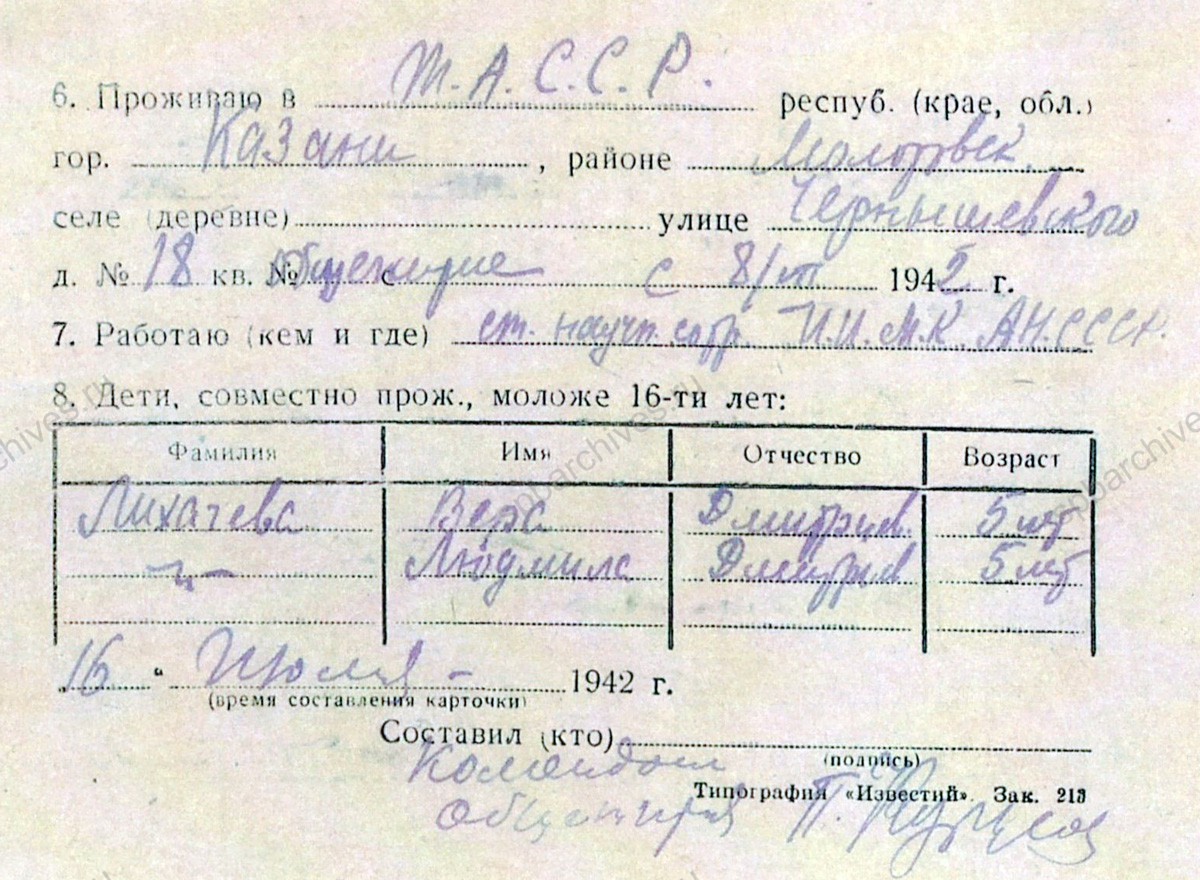 6. Проживаю в Т.А.С.С.Р. респуб. (крае, обл.)
гор. Казани, районе Молотовск.
селе (деревне) улице Чернышевского
д. № 18 кв. № общежитие с с 8/ 1942 г.
7. Работаю (кем и где) ст. научн. сотр. И.И.М.К. АН.СССР.
8. Дети, совместно прож., моложе 16-ти лет:
Фамилия Имя Отчество Возраст
Лихачева Вера Дмитриев. 5 лет
-"- Людмила Дмитриев 5 лет
„16" Июля - 1942 г.
(время составления карточки)
Составил (кто)
(подпись)
Комендант
Типография «Известий». Зак. 213
общежития П.
spbarchives.ru